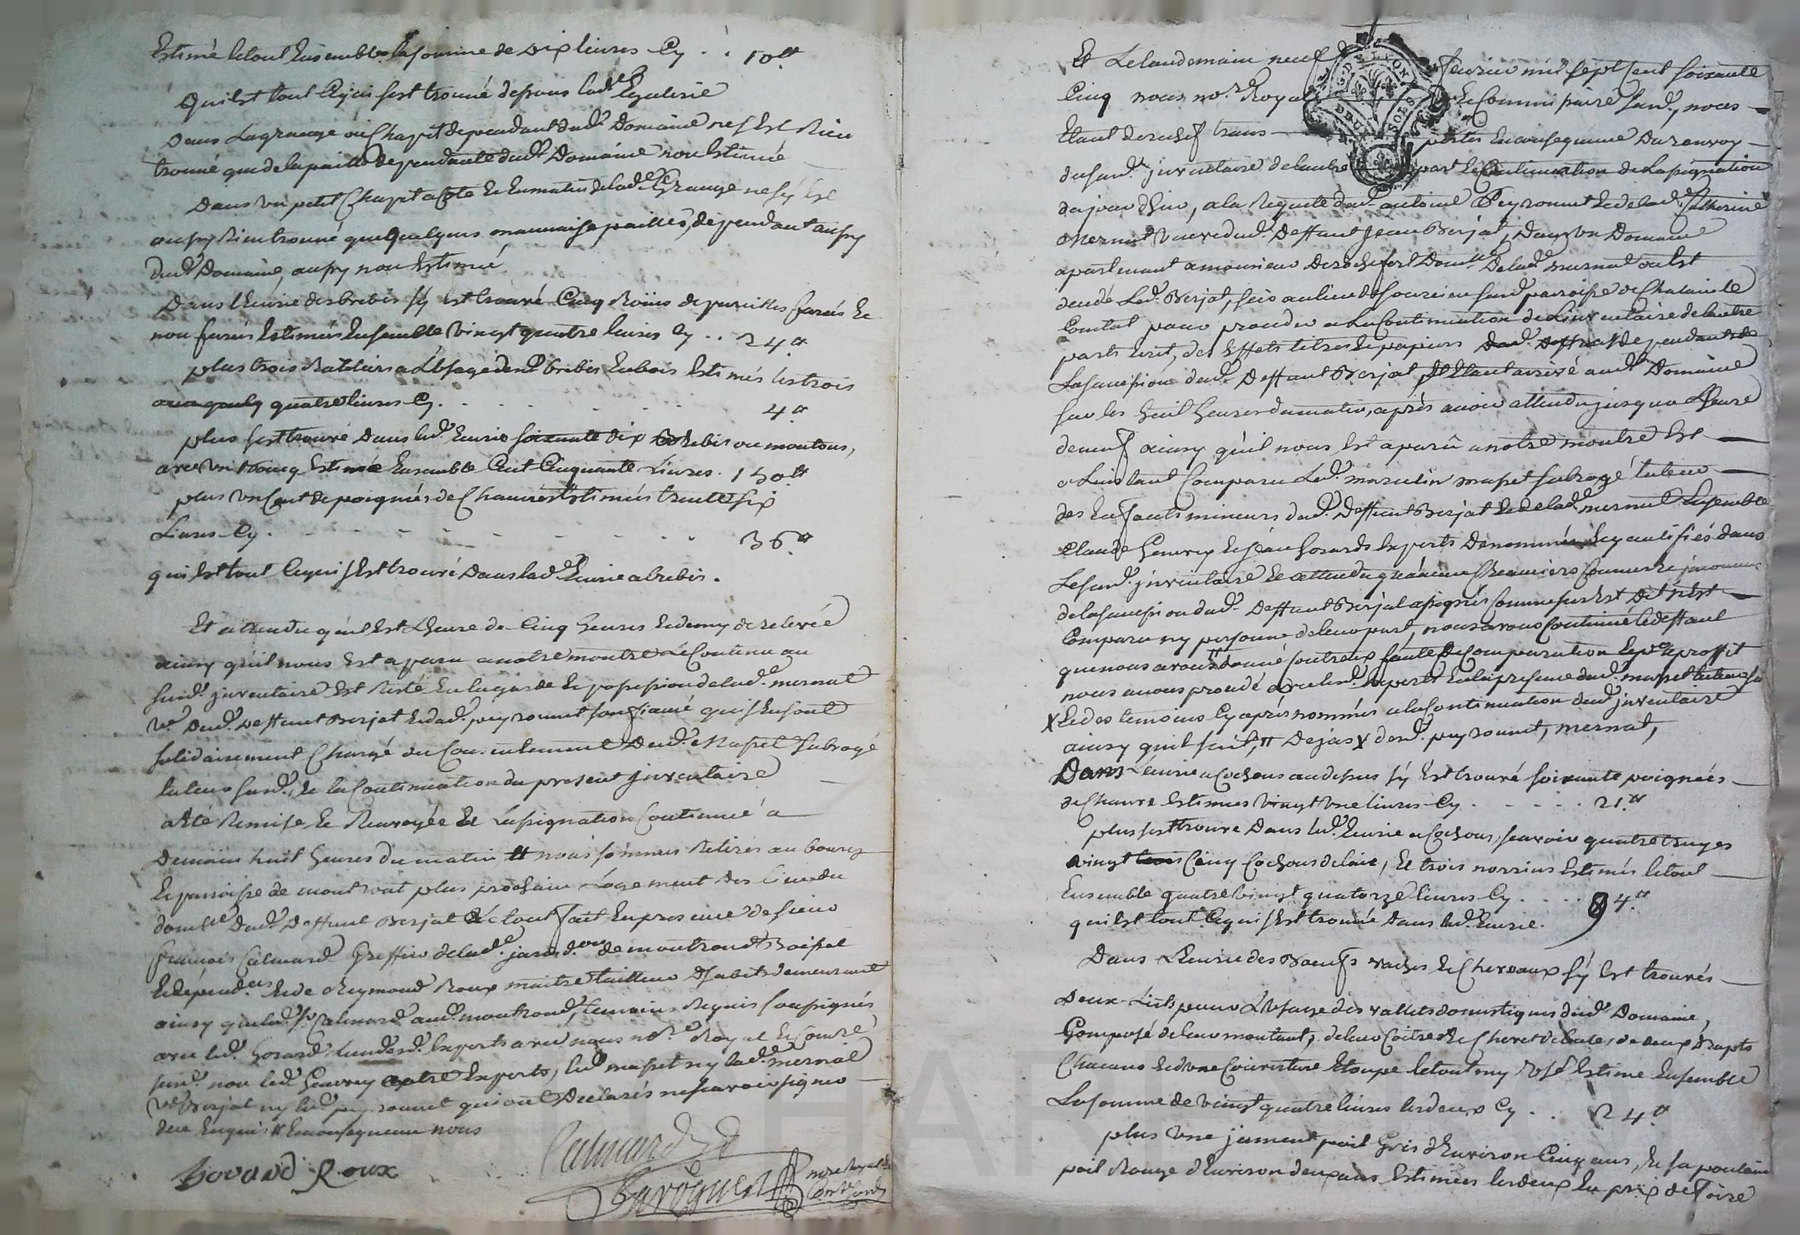 Estimé letout Ensemble la somme de dix livres Cy . . 10 tt
quiest tout Cequi sest trouvé dessous lad.e Galerie
Dans Lagrange ou Chapit dependant dud.t Domaine ne s'Est Rien
trouvé que de la paille dependante dud.t Domaine non Estimé
Dans un petit Chapit a Coté Et En matin de lad.e Grange ne sÿ Est
aussy Rien trouvé que quelques mauvaise pailles, dependant aussy
dud.t Domaine, aussy non Estimé
Dans l'Ecurie des brebis sÿ Est trouvé Cinq de Et
non Estimés Ensemble Vingt quatre livres Cy . . 24 tt
plus trois Ratteliers a L'Usage des d.t brebis En bois Estimés les trois
quatre livres Cy . . . . . 4 tt
plus sest trouvé Dans lad. Ecurie soixante dix brebis ou moutons,
avec un Estimée Ensemble Cent Cinquante Livres . 150 tt
plus un Cent de poignées de Chanvre Estimés trente six
Livres Cy . . . . . . 36 tt
qui Est tout Cequi s'Est trouvé Dans lad.e Ecurie a brebis .
Et attendu qu'il Est L'heure de Cinq heures Et demy de relevée
ainsy qu'il nous Est aparu a notre montre Le Contenu au
susd.t inventaire Est Resté En la garde Et possession de lad.e mernat
v.e dud.t Deffunt Berjat Et dud. peyronnet son fiancé qui s'En sont
solidairement Chargé du Consentement Dud.t Masset Subrogé
tuteur susd.t, Et la Continuation du present inventaire
a Eté Remise, Et Renvoyée Et Lassignation Continuée a
Demain huit heures du matin Et nous sommes Retirés au bourg
Et parroisse de montrond plus prochain Logement des
dud.t Deffunt Berjat Et tout fait En presence de sieur
françois Calmard Greffier de lad.e de montrond
Et de Reymond Roux maitre tailleur d'habits demeurant
ainsy que led. s.r Calmard aud.t montrond, temoins Requis soussignés
avec led.t Gorand Experts avec nous no.re Royal Et
susd. non led.t Gouvrey autre Experts, led. masset ny lad.e mernat
v.e Berjat ny led. peyronnet qui ont Déclarés ne scavoir signer
de ce Enquis Et En consequence nous
Gorand Roux
Calmard
notre Royal Et
Et Le landemain neuf fevrier mil sept cent soixante
Cinq nous no.re Royal Et Commissaire susd.t nous
Etant derechef transportés En consequence Du renvoy
du susd.t inventaire de lautre part Et Continuation de Lassignation
du jour d'hier, a la Requete dud.t antoine Peyronnet Et de lad.e Catherine
Mernat Veuve dud.t Deffunt Jean Berjat, Dans un Domaine
apartenant a monsieur De Rochefort Dom.ne De lad.e mernat ou Est
decedé Led.t Berjat, scis au lieu de susd. parroisse de Chalain le
Comtal pour proceder a La Continuation de L'inventaire de l'autre
parts Ecrit, des Effets titres Et papiers dependants de
La succession dud.t Deffunt Berjat, Et Etant arrivé aud.t Domaine
sur les huit heures du matin, après avoir attendu jusqua L'heure
de neuf ainsy qu'il nous Est aparû a notre montre Est
a L'instant Comparu Led.t masset subrogé tuteur
des Enfants mineurs dud.t Deffunt Berjat Et de lad.e mernat Ensemble
Claude Gouvrey Et Jean Gorand Experts Denommés Et qualifiés dans
Le susd.t inventaire Et attendu qu'aucuns Creanciers
de la succession dud.t Deffunt Berjat assignés Comme sus Est Dit n'Est
Comparu ny personne de leur part, nous avons Continué le deffaut
que nous avons Donné contreux faute de Comparution Et p.r Le proffit
nous avons procedé avec lesd.t Experts En la presence dud.t masset tuteur
X Et des temoins Cy après nommés a la Continuation dud.t inventaire
ainsy qu'il suit, Dejas X desd.t peyronnet, mernat,
Dans L'Ecurie a Cochons au dessus sÿ Est trouvé soixante poignées
de Chanvre Estimés Vingt Une livres Cy . . . . . 21 tt
plus sest trouvé Dans lad. Ecurie a Cochons, scavoir quatre truyes
vingt Cinq Cochons de lait, Et trois norrins Estimés letout
Ensemble quatre vingt quatorze livres Cy . . . . 94 tt
qui Est tout Cequi s'Est trouvé Dans lad. Ecurie.
Dans L'Ecurie des Boeufs vaches Et Chevaux sÿ Est trouvés
Deux Lits pour L'Usage des vallets domestiques dud.t Domaine,
Composé de leur montant, de leur Coitre Et Chevet de , de deux Draps
Chacuns Et d'une Couverture Etoupe letout my Usé Estimé Ensemble
La somme de vingt quatre livres les deux Cy . . 24 tt
plus Une jument poil Gris d'Environ Cinq ans, Et sa pouline
poil Rouge d'Environ deux ans Estimées les deux En prix de foire